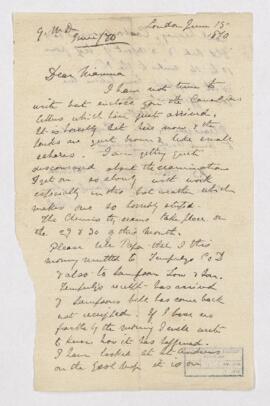 G. M. D.
June/80
London June 15
1880
Dear Mamma
I have not time to
write but enclose you the Canadian
letters, which have just arrived.
It is horribly hot here now & the
lands are quite brown & like small
I am getting quite
discouraged about the examinations
I get on so slowly with work
especially in this hot weather which
makes one so horribly stupid.
The Chemistry exams take place on
the 29 & 30 of this month.
Please tell Papa that I this
morning remitted to Tempest & Co
& also to Sampson Low & Son.
receipt has arrived
& Sampsons bill has come back
not receipted. If I hear no
further by the morning I will write
to know how it has happened.
I have looked at St Andrews
on the East Map it is on